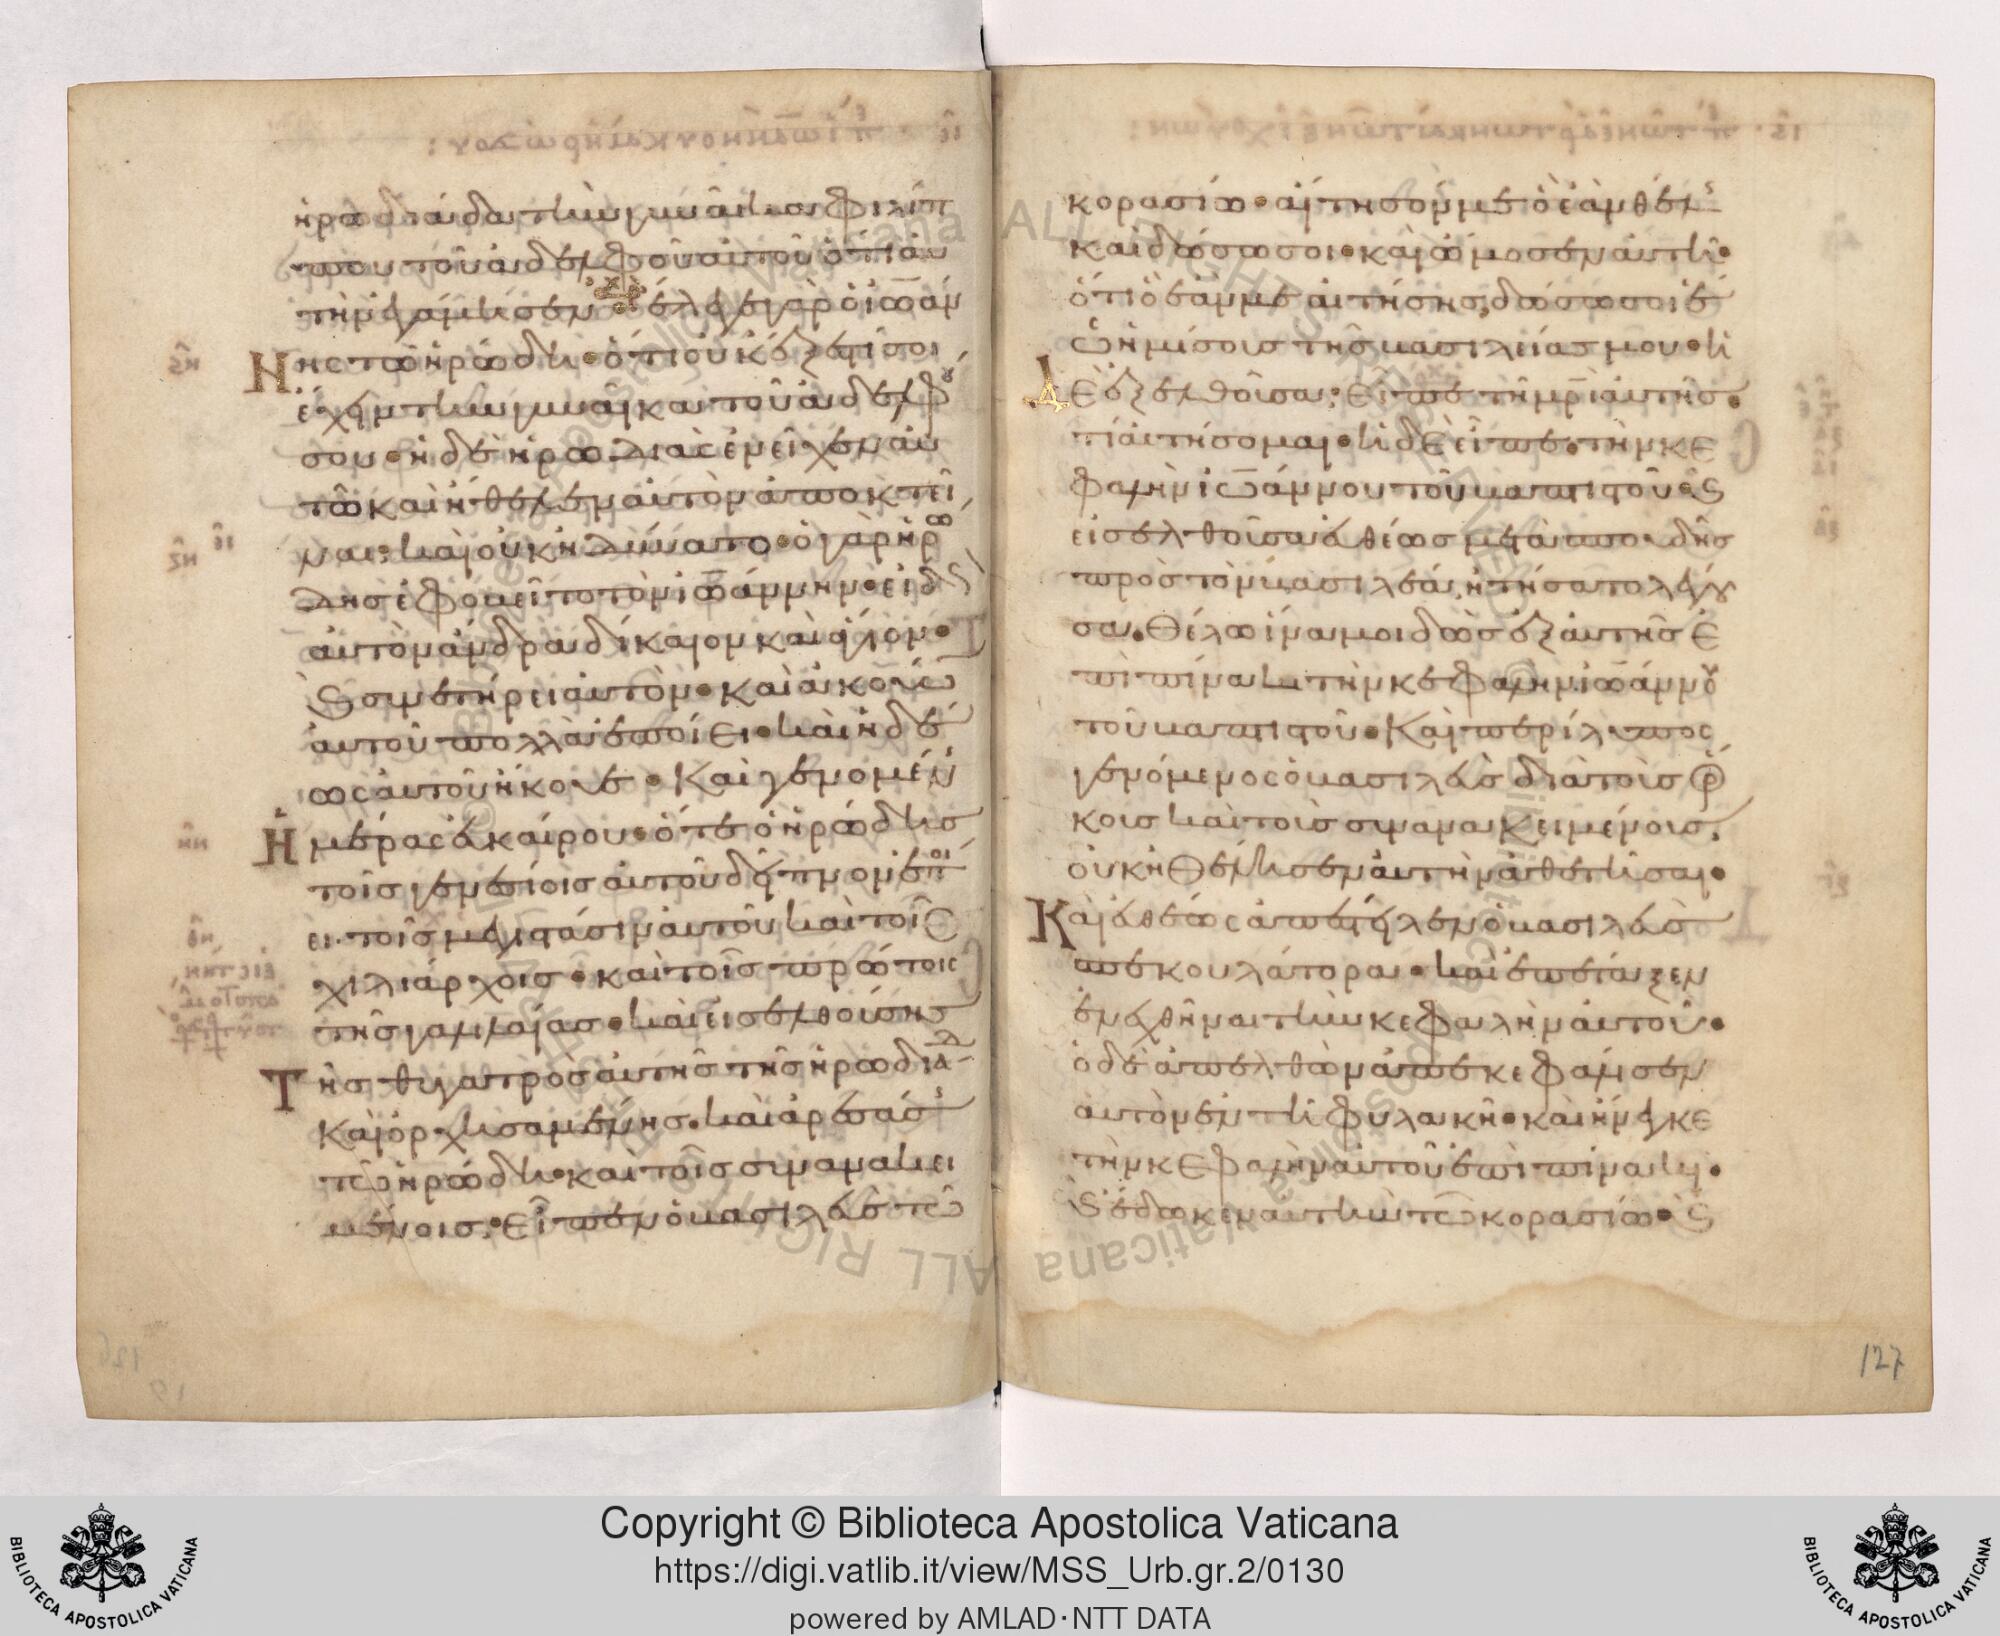 ἡρωδιάδα τὴν γυναῖκα φιλίπ
που τοῦ ἀδελφοῦ αὐτοῦ ὅτι αὐ
τὴν ἐγάμησεν ἔλεγε γὰρ ὁ ἰωάν
νης τῶ ἡρώδη ὅτι οὐκ ἔξεστί σοι
ἔχειν τὴν γυναῖκα τοῦ ἀδελφοῦ
σου ἡ δὲ ἡρωδιὰς ἐνεῖχεν αὐ
τῶ καὶ ἤθελεν αὐτὸν ἀποκτεῖ
ναι καὶ οὐκ ἠδύνατο ὁ γὰρ ἡρώ
δης ἐφοβεῖτο τὸν ἰωάννην εἰδὼς
αὐτὸν ἄνδρα δίκαιον καὶ ἅγιον
καὶ συνετήρει αὐτὸν καὶ ἀκούων
αὐτοῦ πολλὰ ἐποίει καὶ ἡδέ
ως αὐτοῦ ἤκουε Καὶ γενομένης
Ἡμέρας εὐκαίρου ὅτε ὁ ἡρώδης
τοῖς γενεσίοις αὐτοῦ δεῖπνον ἐποί
ει τοῖς μεγιστάσιν αὐτοῦ καὶ τοῖς
χιλιάρχοις καὶ τοῖς πρώτοις
τῆς γαλιλαίας καὶ εἰσελθούσης
Τῆς θυγατρὸς αὐτῆς τῆς ἡρωδιάδος
Καὶ ὀρχησαμένης καὶ ἀρεσάσης
τῶ ἡρώδη καὶ τοῖς συνανακει
μένοις Εἶπεν ὁ βασιλεὺς τῶ
κορασίω αἴτησόν με ὃ ἐὰν θέλης
καὶ δώσω σοι καὶ ὤμοσεν αὐτῆ
ὅτι ὃ ἐάν με αἰτήσης δώσω σοι ἕ
ως ἡμίσους τῆς βασιλείας μου ἡ
Δὲ ἐξελθοῦσα Εἶπε τῆ μρὶ αὐτῆς
τί αἰτήσομαι ἡ δὲ εἶπε τὴν κε
φαλὴν ἰωάννου τοῦ βαπτιστοῦ καὶ
εἰσελθοῦσα εὐθέως μετὰ σπουδῆς
πρὸς τὸν βασιλέα ἠτήσατο λέγου
σα Θέλω ἵνα μοι δῶς ἐξ αὐτῆς ἐ
πὶ πίνακι τὴν κεφαλὴν ἰωάννου
τοῦ βαπτιστοῦ Καὶ περίλυπος
γενόμενος ὁ βασιλεὺς διὰ τοὺς ὅρ
κους καὶ τοὺς συνανακειμένους
οὐκ ἠθέλησεν αὐτὴν ἀθετῆσαι
Καὶ εὐθέως ἀποστείλας ὁ βασιλεὺς
σπεκουλάτορα καὶ ἐπέταξεν
ἐνεχθῆναι τὴν κεφαλὴν αὐτοῦ
ὁ δὲ ἀπελθὼν ἀπεκεφάλισεν
αὐτὸν ἐν τῆ φυλακῆ καὶ ἤνεγκε
τὴν κεφαλὴν αὐτοῦ ἐπὶ πίνακι
καὶ ἔδωκεν αὐτὴν τῶ κορασίω καὶ
127
Copyright © Biblioteca Apostolica Vaticana
https://digi.vatlib.it/view/MSS_Urb.gr.2/0130
powered by AMLAD·NTT DATA
BIBLIOTECA APOSTOLICA VATICANA
BIBLIOTECA APOSTOLICA VATICANA